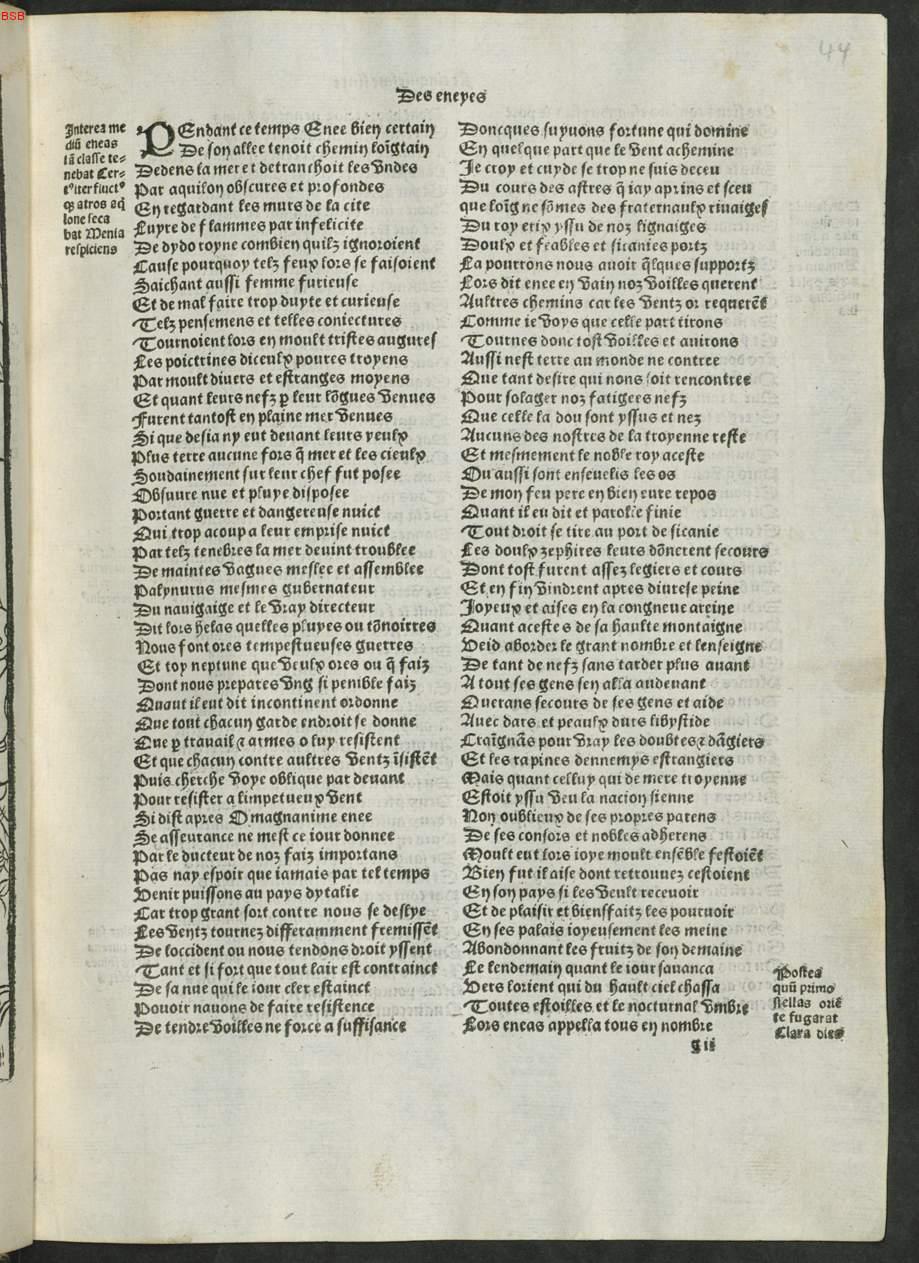 BSB
44
Des eneyes
Interea me
diū eneas
iā classe te-
nebat Cer-
tꝰiter fluctꝰ
qꝫ atros aq̄
lone seca
bat Menia
respiciens
PEndant ce temps Enee bien certain
De son allee tenoit chemin loīgtain
Dedens la mer et detranchoit les Vndes
Par aquilon obscures et profondes
En regardant les murs de la cite
Luyre de flammes par infelicite
De dydo royne combien quilz ignoroient
Cause pourquoy telz feux lors se faisoient
Saichant aussi femme furieuse
Et de mal faire trop duyte et curieuse
Telz pensemens et telles coniectures
Tournoient lors en moult tristes augures
Les poictrines diceulx poures troyens
Par moult diuers et estranges moyens
Et quant leurs nefz ꝑ leur lōgues Venues
Furent tantost en plaine mer Venues
Si que desia ny eut deuant leurs yeulx
Plus terre aucune fors q̄ mer et les cieulx
Soudainement sur leur chef fut posee
Obscure nue et pluye disposee
Portant guerre et dangereuse nuict
Qui trop acoup a leur emprise nuict
Par telz tenebres la mer deuint troublee
De maintes Vagues meslee et assemblee
Palynurus mesmes gubernateur
Du nauigaige et le Vray directeur
Dit lors helas quelles pluyes ou tōnoirres
Nous font ores tempestueuses guerres
Et toy neptune que Veulx ores ou q̄ faiz
Dont nous prepares Vng si penible faiz
Quant il eut dit incontinent ordonne
Que tout chacun garde endroit se donne
Que ꝑ trauail ⁊ armes o luy resistent
Et que chacun contre aultres Ventz īsistēt
Puis cherche Voye oblique par deuant
Pour resister a limpetueux Vent
Si dist apres O magnanime enee
Se asseurance ne mest ce iour donnee
Par le ducteur de noz faiz importans
Pas nay espoir que iamais par tel temps
Venir puissons au pays dytalie
Car trop grant sort contre nous se deslye
Les Ventz tournez differamment fremissēt
De loccident ou nous tendons droit yssent
Tant et si fort que tout lair est contrainct
De sa nue qui le iour cler estainct
Pouoir nauons de faire resistence
De tendre Voilles ne force a suffisance
Doncques suyuons fortune qui domine
En quelque part que le Vent achemine
Je croy et cuyde se trop ne suis deceu
Du cours des astres q̄ iay aprins et sceu
que loīg ne sōmes des fraternaulx riuaiges
Du roy erix yssu de noz lignaiges
Doulx et feables et sicanies portz
La pourrons nous auoir q̄lques supportz
Lors dit enee en Vain noz Voilles querent
Aultres chemins car les Ventz or requerēt
Comme ie Voys que celle part tirons
Tournes donc tost Voilles et auirons
Aussi nest terre au monde ne contree
Que tant desire qui nons soit rencontree
Pour solager noz fatigees nefz
Que celle la dou sont yssus et nez
Aucuns des nostres de la troyenne reste
Et mesmement le noble roy aceste
Ou aussi sont enseuelis les os
De mon feu pere en bien eure repos
Quant il eu dit et parolle finie
Tout droit se tire au port de sicanie
Les doulx zephires leurs dōnerent secours
Dont tost furent assez legiers et cours
Et en fin Vindrent apres diuerse peine
Joyeux et aises en la congneue areine
Quant acestes de sa haulte montaigne
Veid aborder le grant nombre et lenseigne
De tant de nefz sans tarder plus auant
A tout ses gens sen alla audeuant
Querans secours de ses gens et aide
Auec dars et peaulx durs libystide
Craīgnās pour Vray les doubtes ⁊ dāgiers
Et les rapines dennemys estrangiers
Mais quant celluy qui de mere troyenne
Estoit yssu Veu la nacion sienne
Non oublieux de ses propres parens
De ses consors et nobles adherens
Moult eut lors ioye moult ensēble festoiēt
Bien fut il aise dont retrouuez cestoient
En son pays si les Veult receuoir
Et de plaisir et biensfaitz les pouruoir
En ses palais ioyeusement les meine
Abondonnant les fruitz de son demaine
Le lendemain quant le iour sauanca
Vers lorient qui du hault ciel chassa
Toutes estoilles et le nocturnal Vmbre
Lors eneas appella tous en nombre
Postea
quū primo
stellas oriē
te fugarat
Clara dies
g ii